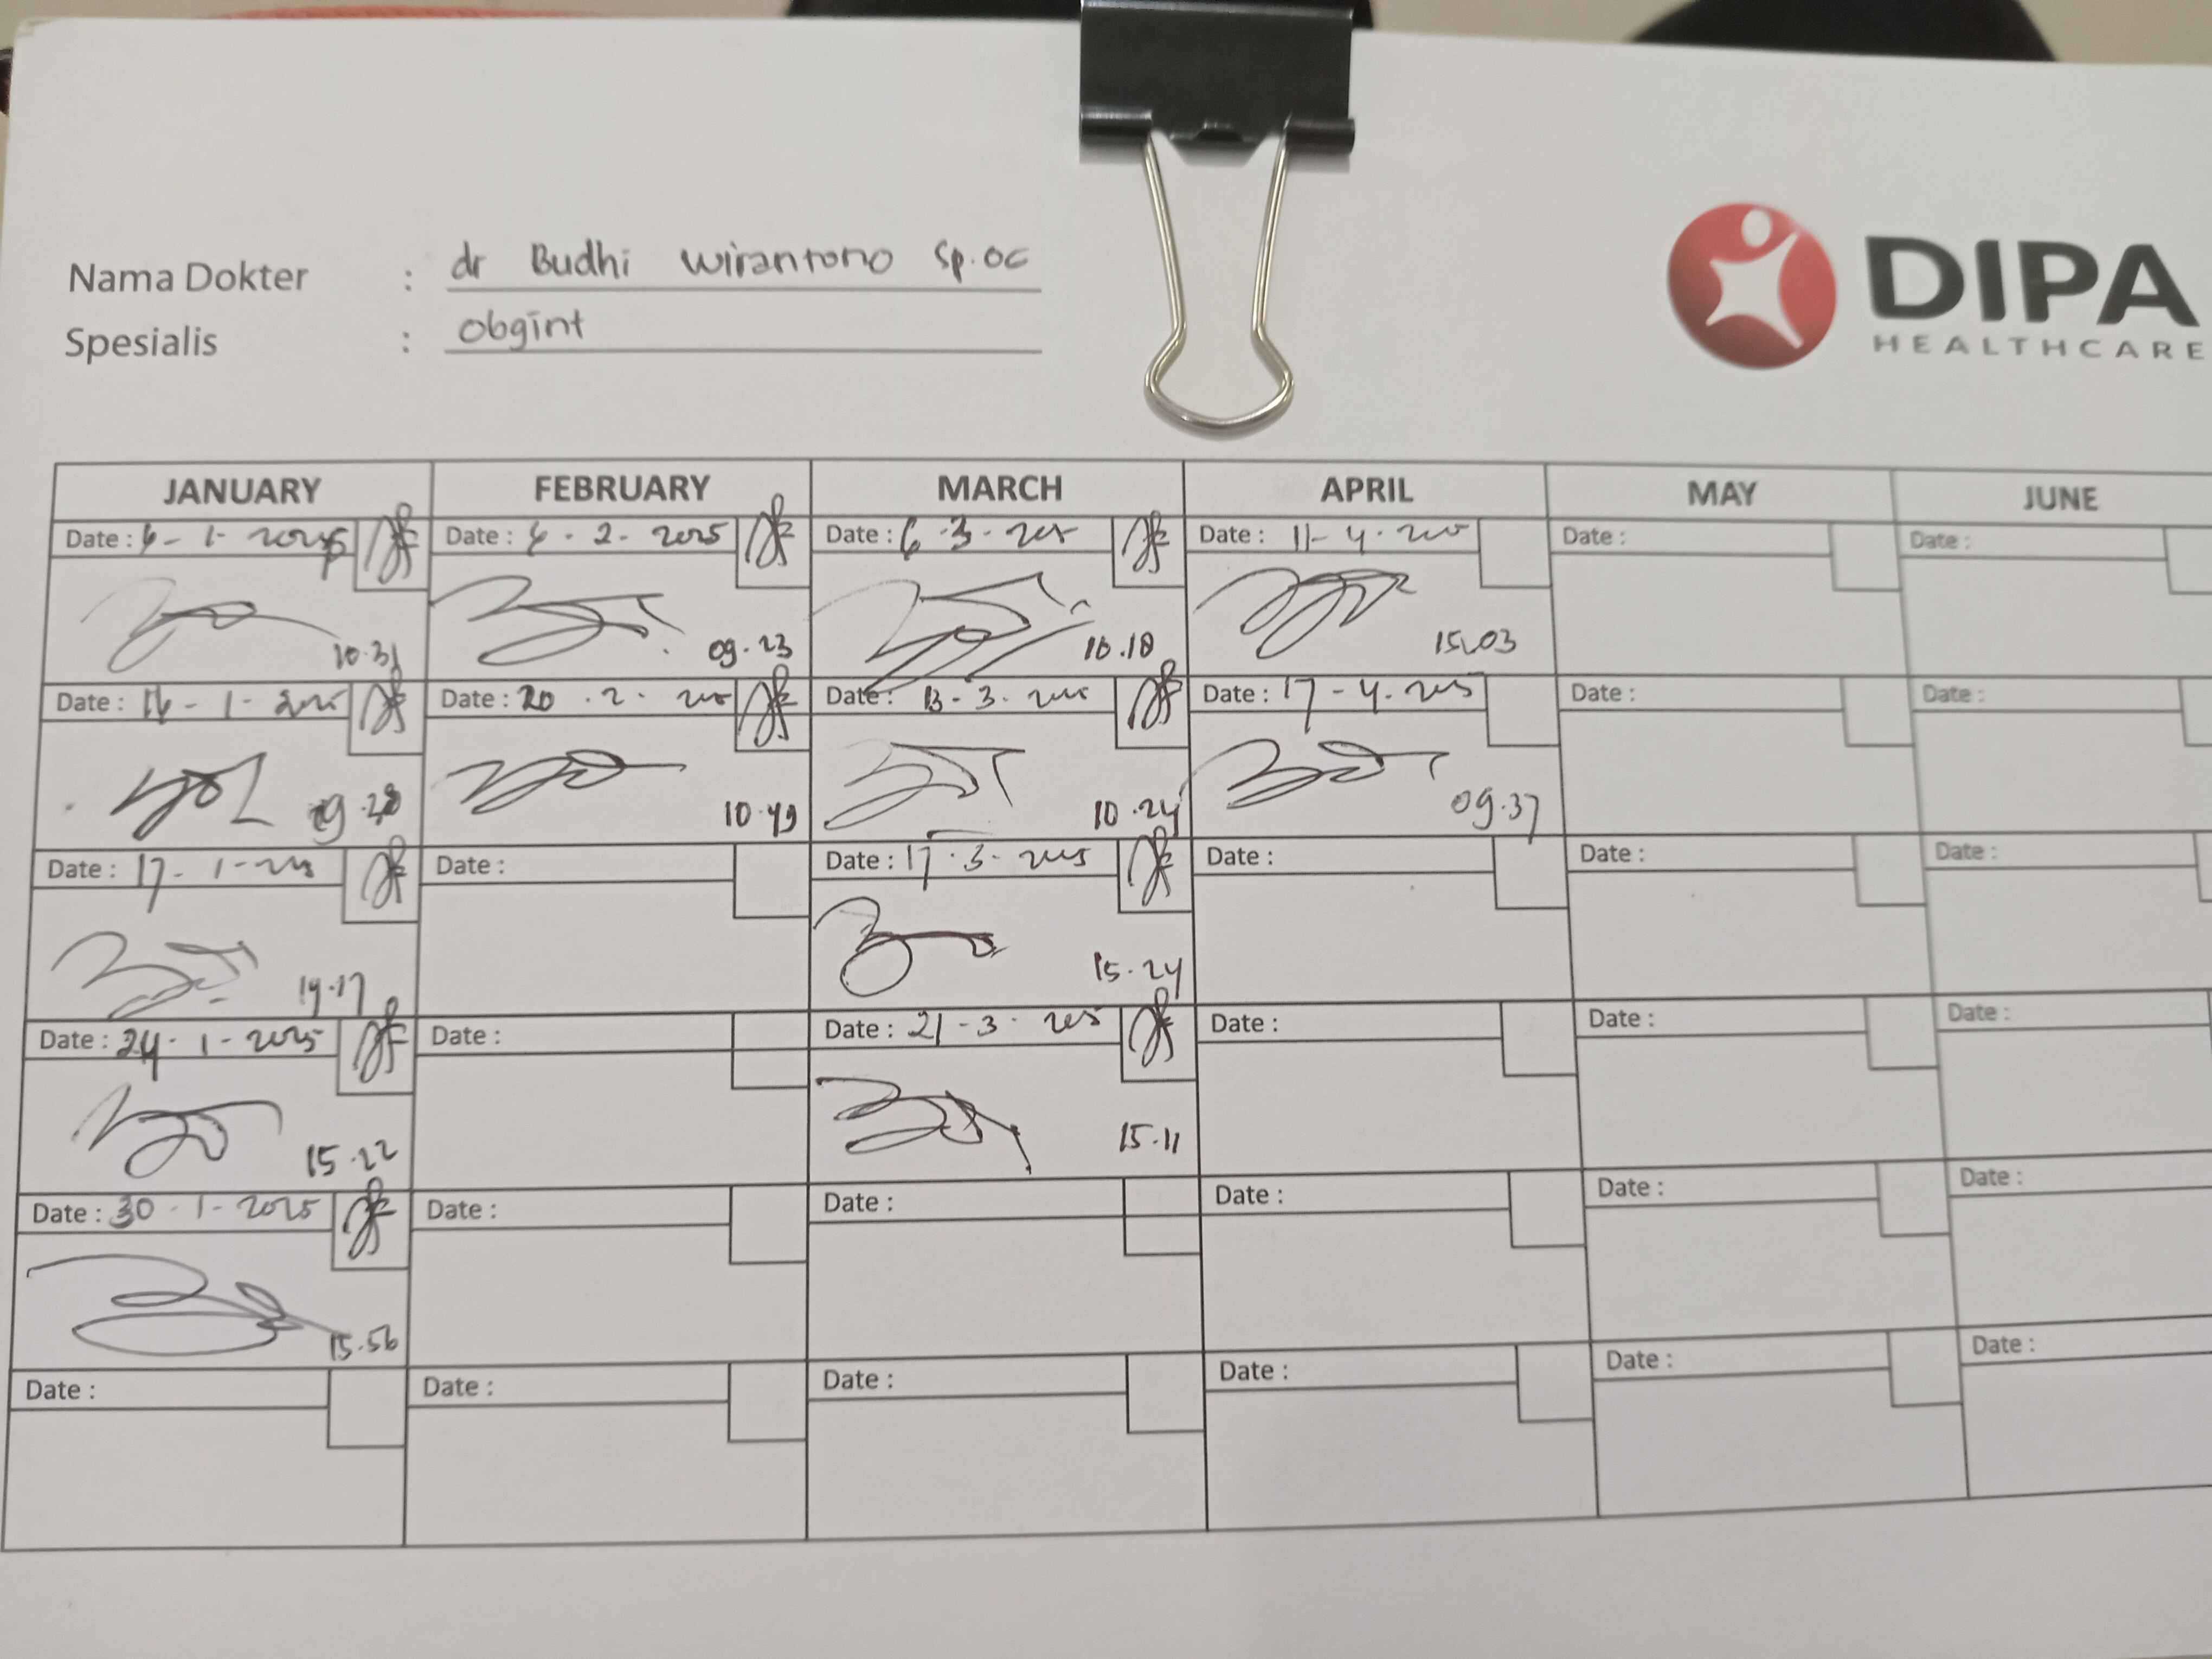 Nama Dokter : dr Budhi Wirantono Sp.OG
Spesialis : Obgint
DIPA
HEALTHCARE
JANUARY FEBRUARY MARCH APRIL MAY JUNE
Date : 6 - 1 - 2025 Date : 6 - 2 - 2025 Date : 6 - 3 - 2025 Date : 11 - 4 - 2025 Date : Date :
10.31 09.23 10.18 15.03
Date : 16 - 1 - 2025 Date : 20 - 2 - 2025 Date : 13 - 3 - 2025 Date : 17 - 4 - 2025 Date : Date :
09.28 10.49 10.24 09.37
Date : 17 - 1 - 2025 Date : Date : 17 - 3 - 2025 Date : Date : Date :
14.17 15.24
Date : 24 - 1 - 2025 Date : Date : 21 - 3 - 2025 Date : Date : Date :
15.22 15.11
Date : 30 - 1 - 2025 Date : Date : Date : Date : Date :
15.56
Date : Date : Date : Date : Date : Date :